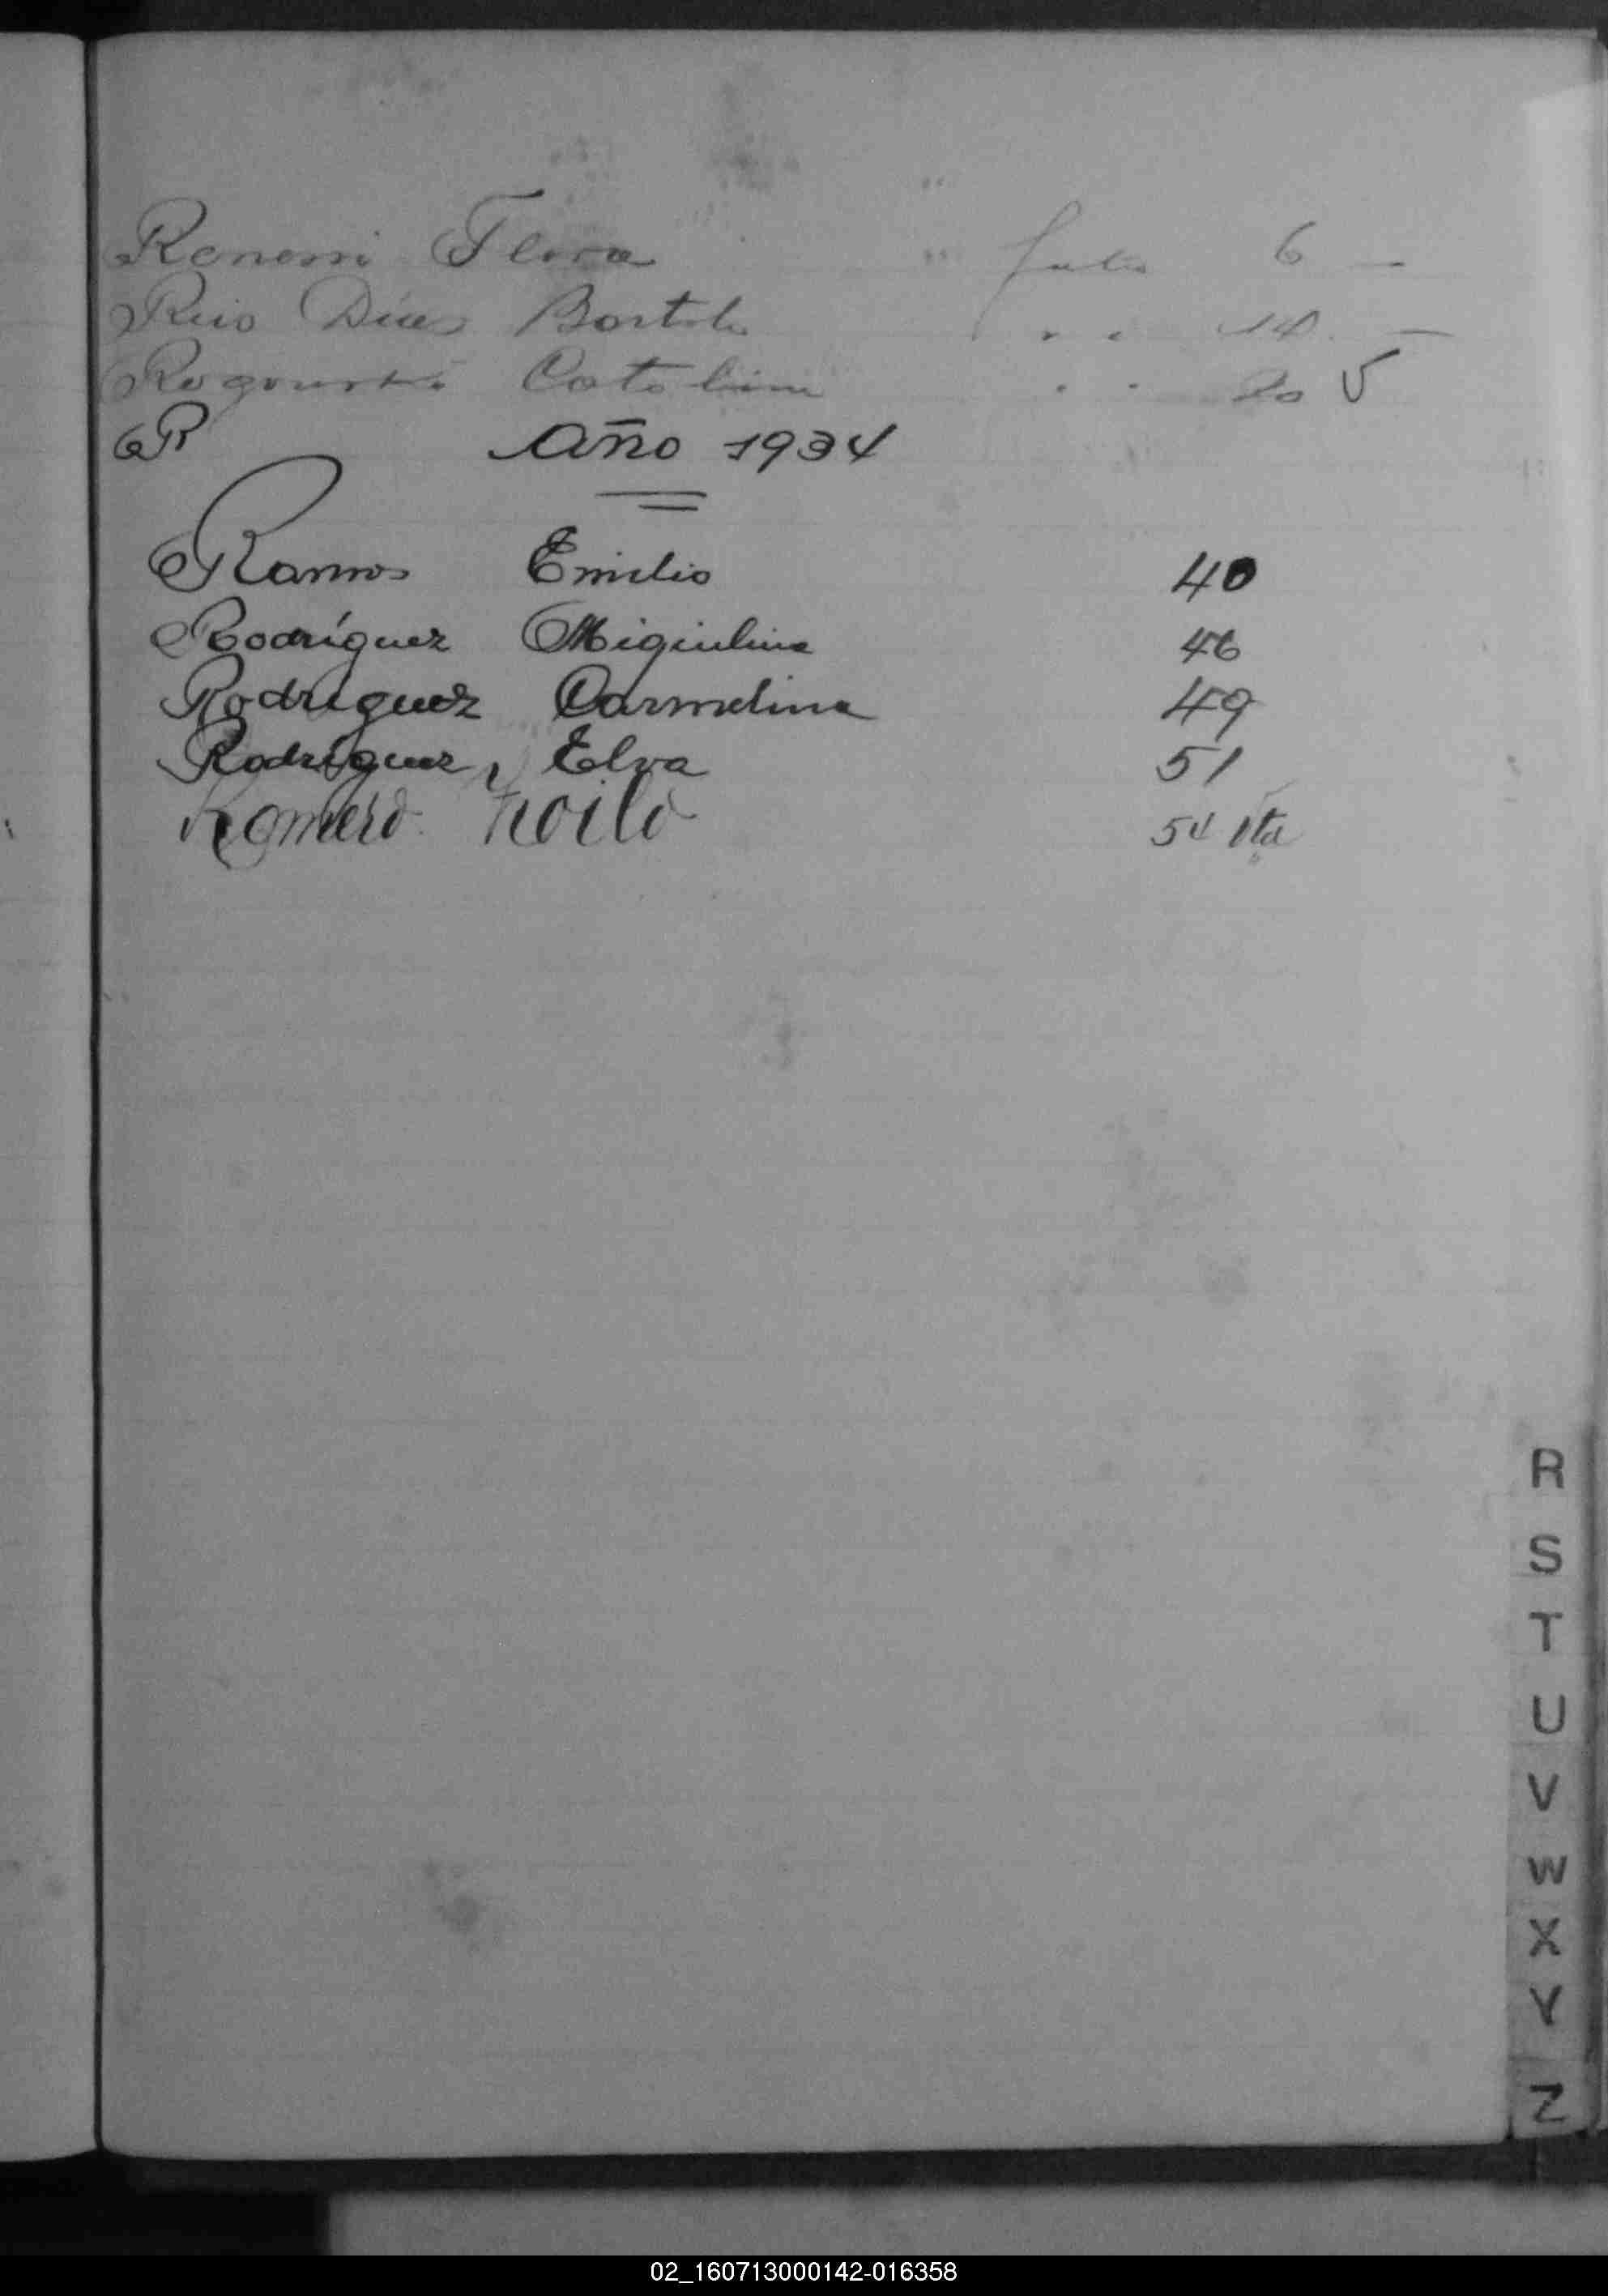 Flora 6 —
Bartolo " " 14. —
Catalina " " 20 V
R Año 1934
Ramos Emilio 40
Rodríguez Miguelina 46
Rodríguez Carmelina 49
Rodríguez, Elva 51
Romero Zoilo 54 vta
R
S
T
U
V
W
X
Y
Z
02_160713000142-016358